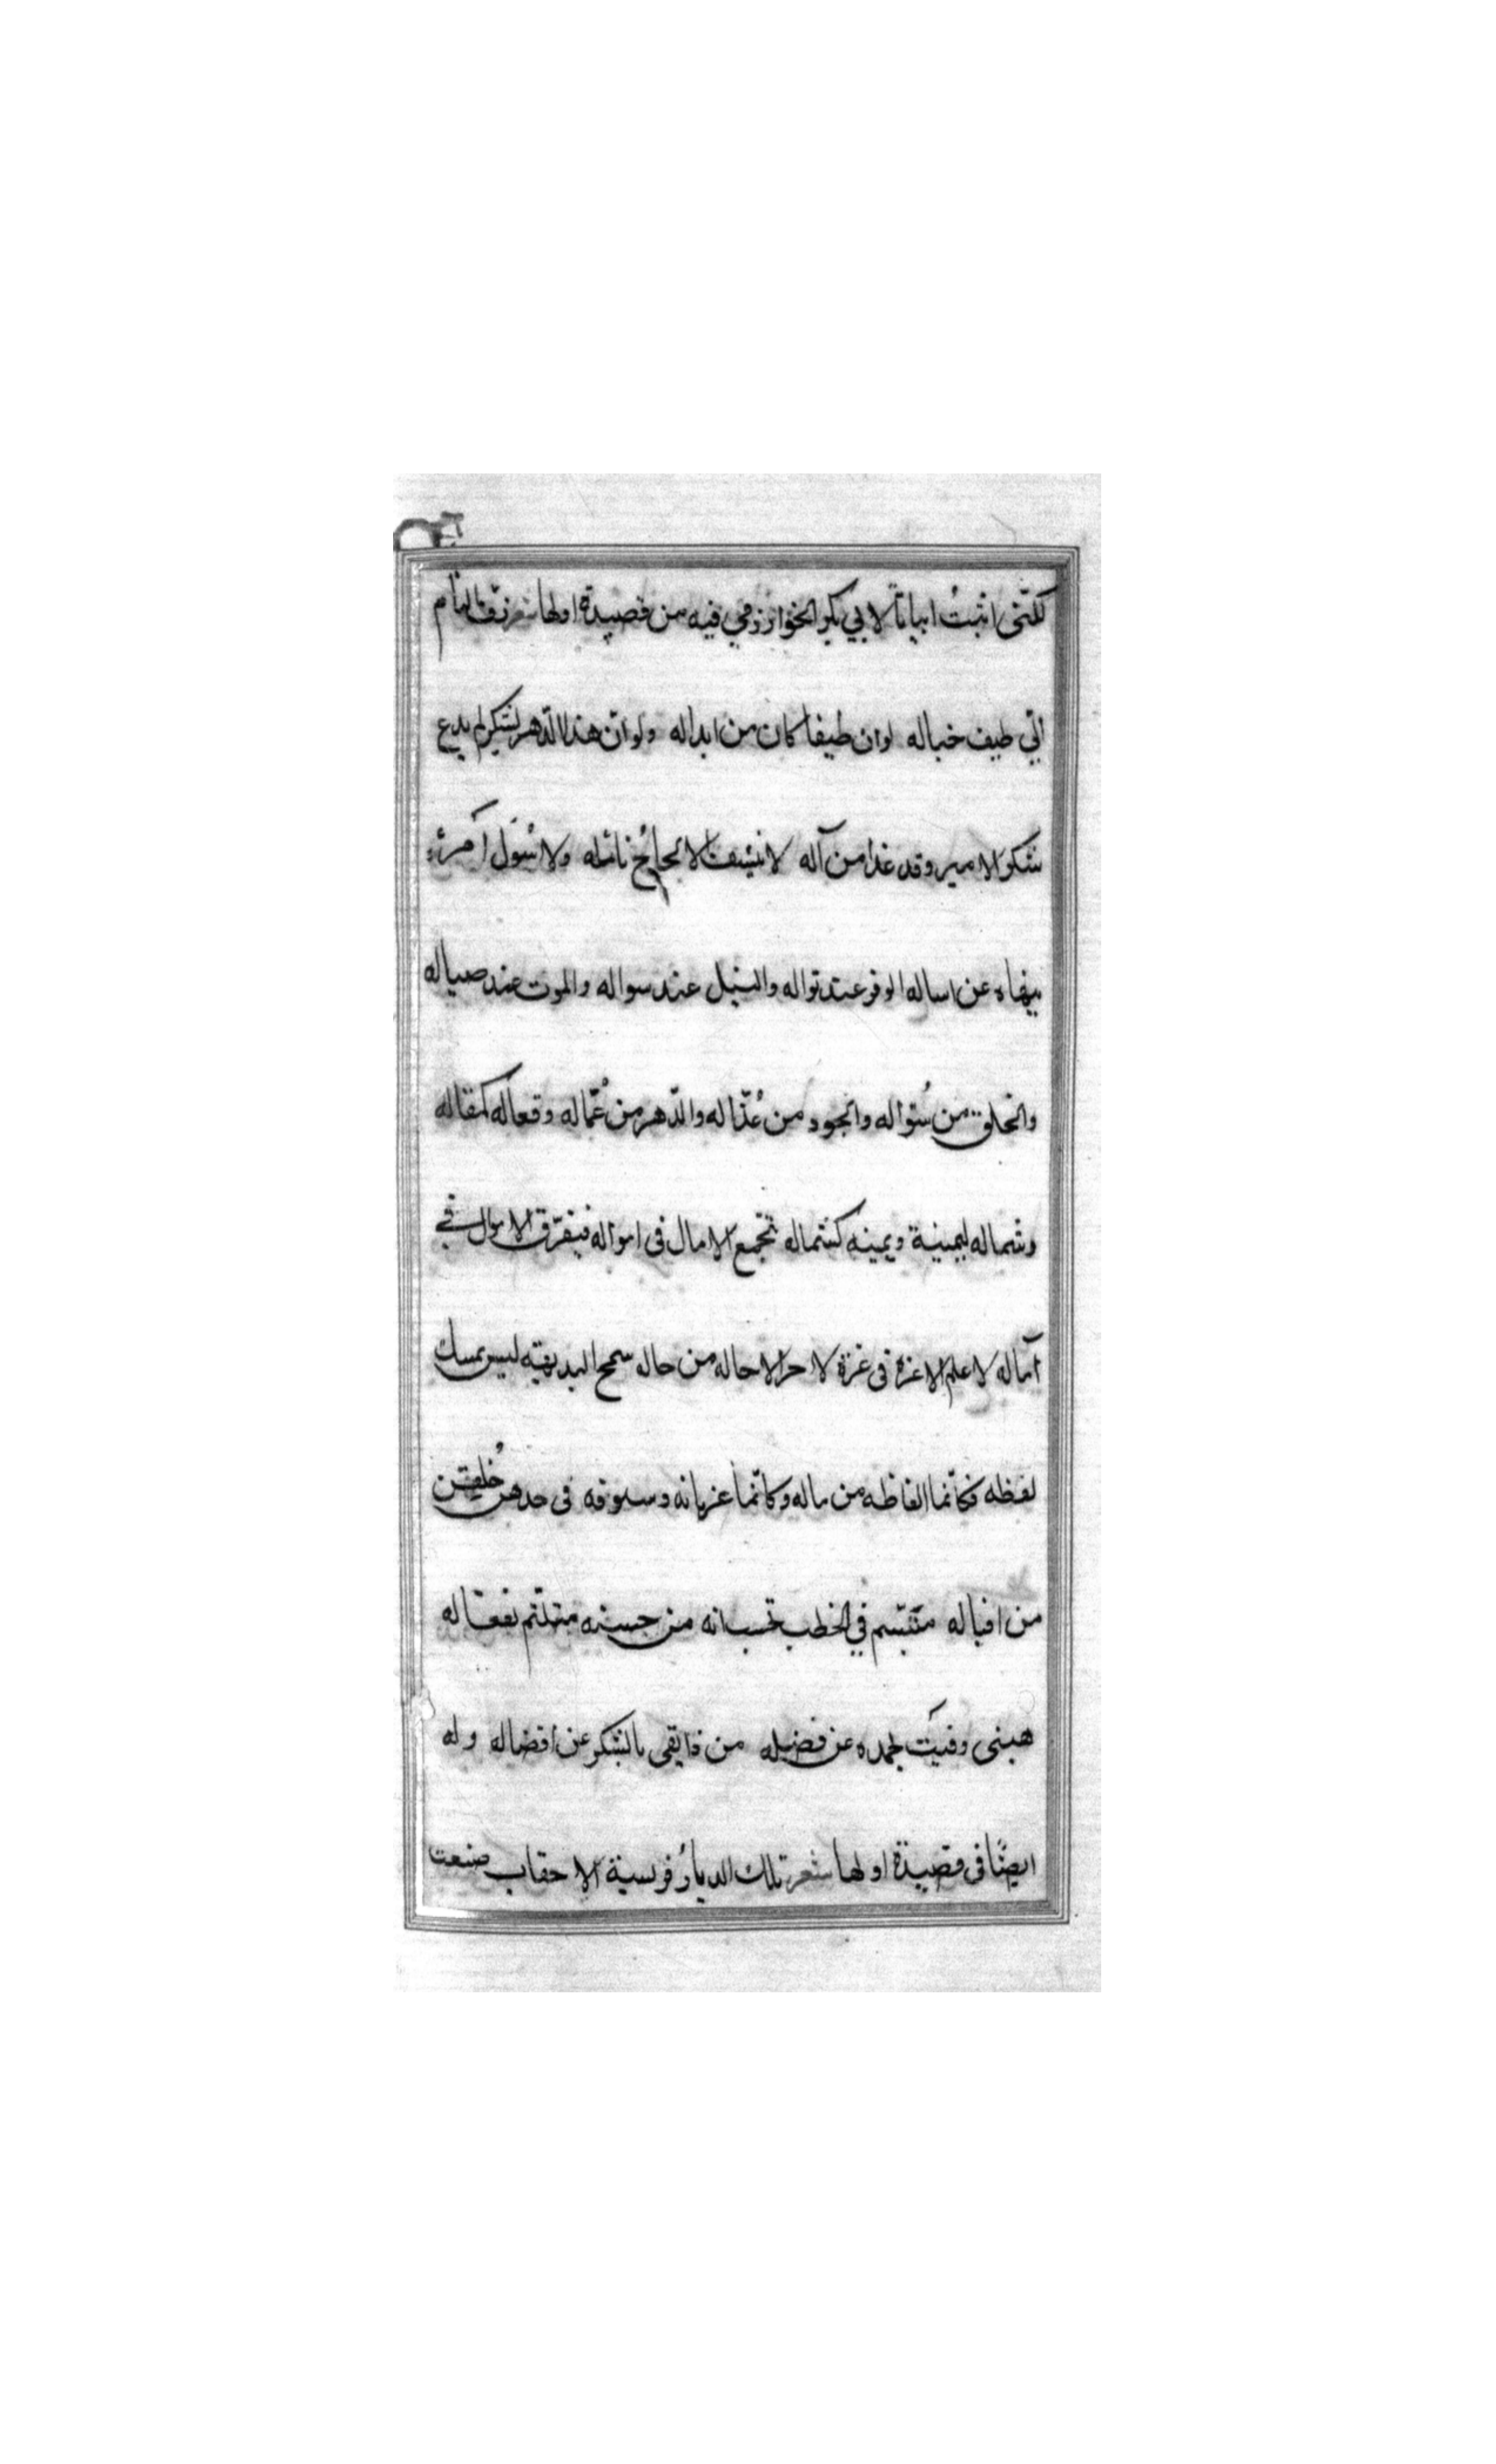 لكنّني اثبتُ ابياتاً لابي بكر الخوارزمي فيه من قصيدة اولها شعر
اتي طيف خياله لوان طيفا كان من ابداله ولو انّ هذا الدّهر يشكر لم يدع
شكر الامير وقد غدا من آله نائله ولا
عن اساله الوفر عند نواله والنيل عند سواله والموت عند صياله
والخلق من سُؤاله والجود من عُذّاله والدّهر من عُمّاله وفعاله كمقاله
وشماله ليمينة ويمينه كشماله تجمّع الامال في امواله فيفرّق الاموال في
آماله لا علم الا غرة في غرة لا حر الا حاله من حاله سمح البديهة ليس يمسك
لفظه فكانّما الفاظه من ماله وكانّما عزماته وسيوفه في حدهن خُلقن
من اقباله متبّسم في الخطب تحسب انه من حسنه متلثم بفعاله
هبني وفيتُ بحمده عن فضله من ذا يفي بالشكر عن افضاله وله
ايضًا في قصيدة اولها شعر تلك الديارُ فريسة الاحقاب صنعت